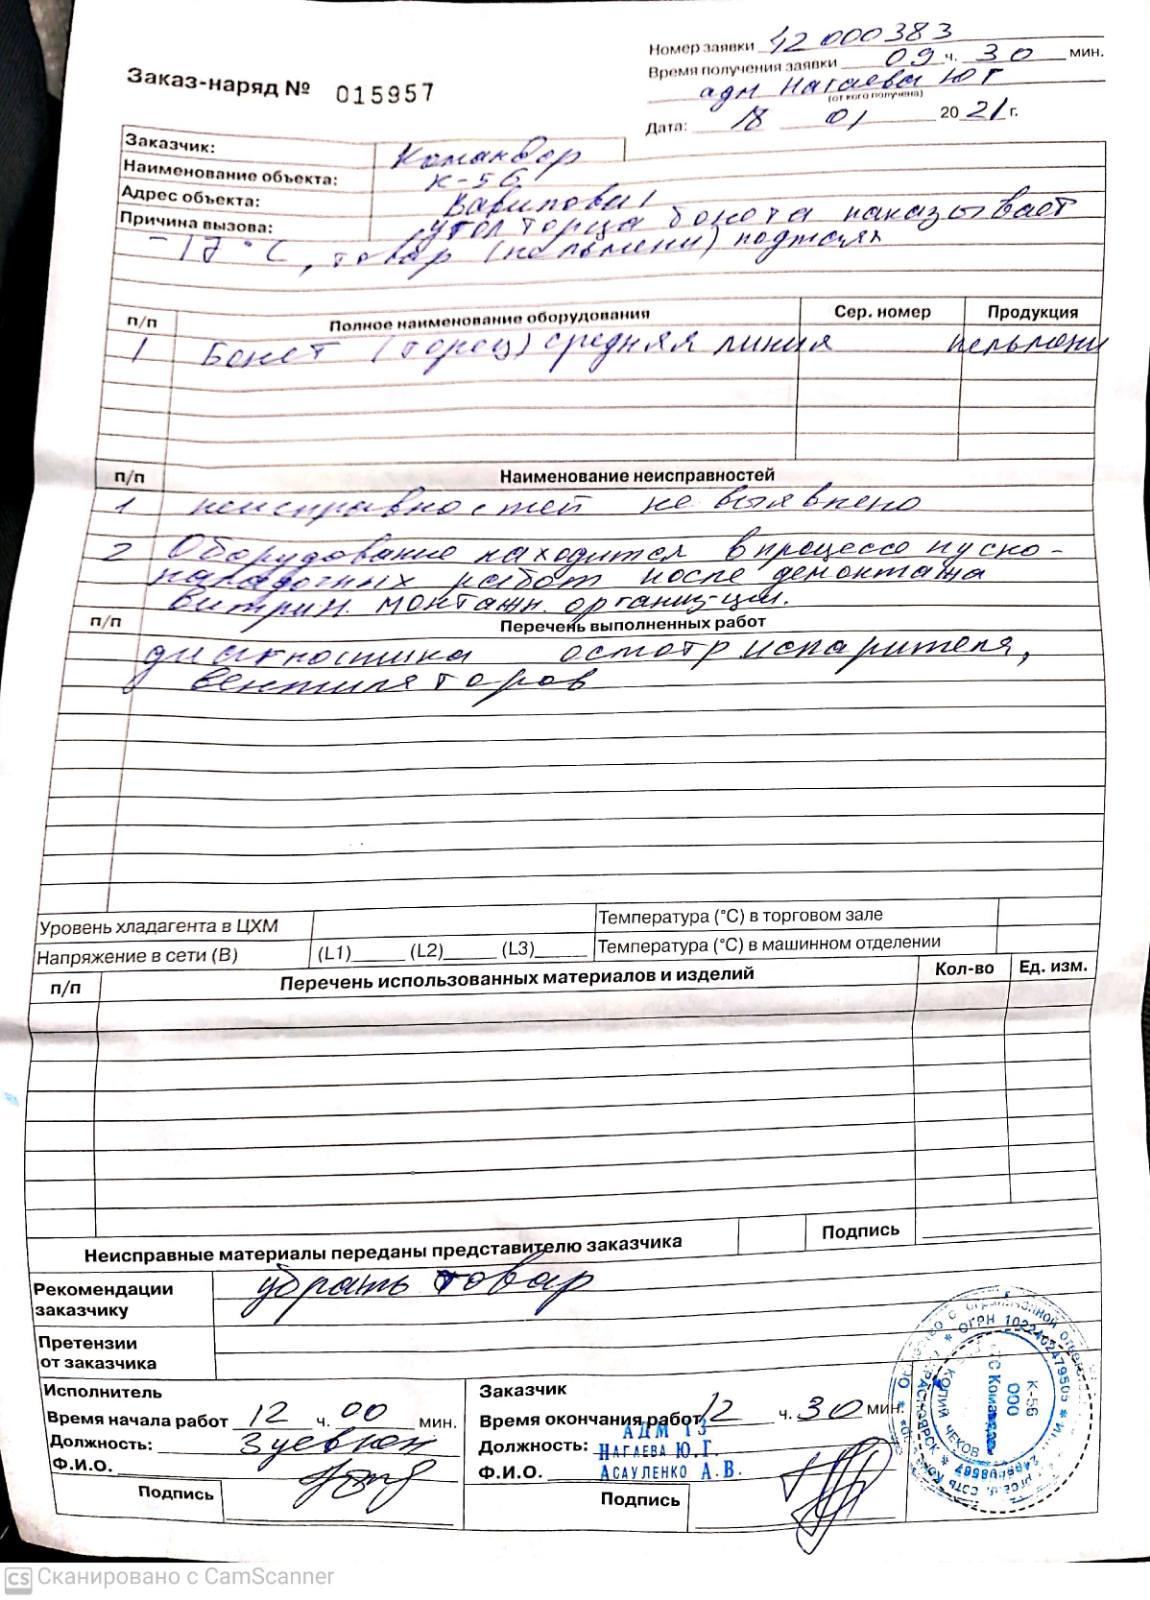 Номер заявки 42000383
Заказ-наряд № 015957
Время получения заявки 09 ч. 30 мин.
адм Нагаева ЮГ
(от кого получена)
Дата: 18 01 2021 г.
Заказчик: Командор
Наименование объекта: К-56
Адрес объекта: Вавилова 1
Причина вызова: угол торца бонета паказывает
-17°C, товар (пельмени) подтаял
п/п Полное наименование оборудования Сер. номер Продукция
1 Бонет (торец) средняя линия пельмени
п/п Наименование неисправностей
1 неисправностей не выявлено
2 Оборудование находится в процессе пуско-
наладочных работ после демонтажа
витрин. монтажн. организ-ции.
п/п Перечень выполненных работ
диагностика осмотр испарителя,
вентиляторов
Уровень хладагента в ЦХМ Температура (°C) в торговом зале
Напряжение в сети (В) (L1)_____ (L2)_____ (L3)_____ Температура (°C) в машинном отделении
п/п Перечень использованных материалов и изделий Кол-во Ед. изм.
Неисправные материалы переданы представителю заказчика Подпись
Рекомендации убрать товар
заказчику
Претензии
от заказчика
Исполнитель
Время начала работ 12 ч. 00 мин.
Должность:
Ф.И.О.
Подпись
Заказчик
Время окончания работ 12 ч. 30 мин.
АДМ 13
Должность: НАГАЕВА Ю.Г.
Ф.И.О. АСАУЛЕНКО А.В.
Подпись
К-56
ООО
ОГРН 1022402479505
КОПИЙ ЧЕКОВ
КРАСНОЯРСК
CS Сканировано с CamScanner